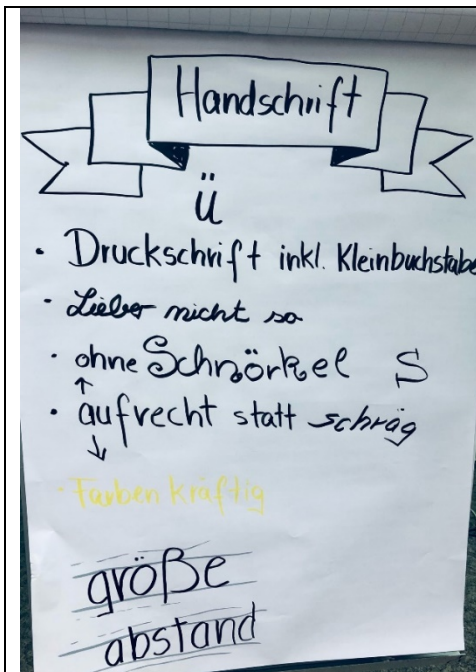 Handschrift
ü
· Druckschrift inkl. Kleinbuchstabe
· Lieber nicht so
· ohne Schnörkel S
· aufrecht statt schräg
· Farben kräftig
größe
abstand